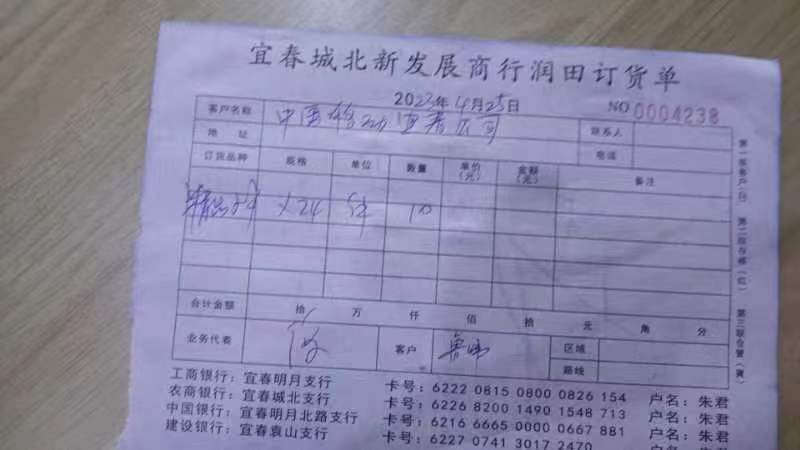 宜春城北新发展商行润田订货单
2023年4月25日 NO 0004238
客户名称 中国移动宜春公司 联系人
地址 电话
订货品种 规格 单位 数量 单价(元) 金额(元) 备注
×24 件 10
合计金额 拾 万 仟 佰 拾 元 角 分
业务代表 客户 区域
路线
工商银行：宜春明月支行 卡号：6222 0815 0800 0826 154 户名：朱君
农商银行：宜春城北支行 卡号：6226 8200 1490 1548 713 户名：朱君
中国银行：宜春明月北路支行 卡号：6216 6665 0000 0667 881 户名：朱君
建设银行：宜春袁山支行 卡号：6227 0741 3017 2470 户名：朱君